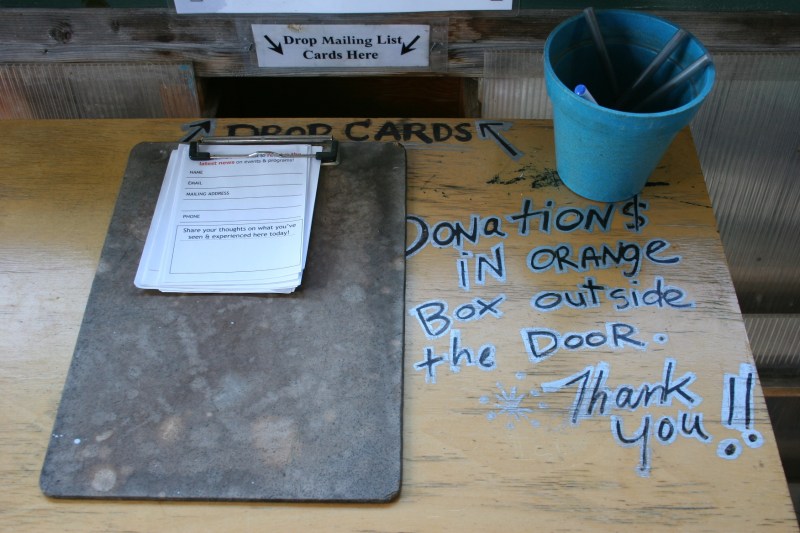 Drop Mailing List
Cards Here
DROP CARDS
latest news on events & programs!
NAME
EMAIL
MAILING ADDRESS
PHONE
Share your thoughts on what you've
seen & experienced here today!
DONATION$
IN ORANGE
Box outside
the DOOR.
Thank
you!!